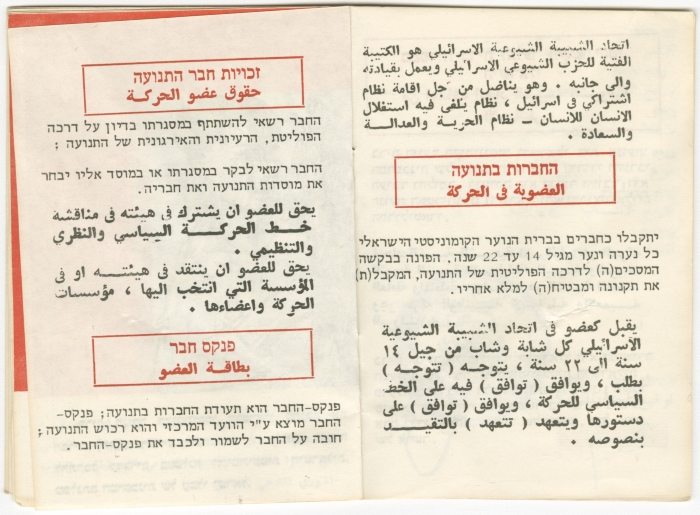 اتحاد الشبيبة الشيوعية الاسرائيلي هو الكتيبة
الفتية للحزب الشيوعي الاسرائيلي ويعمل بقيادته
والى جانبه . وهو يناضل من اجل اقامة نظام
اشتراكي في اسرائيل ، نظام يلغى فيه استغلال
الانسان للانسان ــ نظام الحرية والعدالــة
والسعادة .
החברות בתנועה
العضوية في الحركة
יתקבלו כחברים בברית הנוער הקומוניסטי הישראלי
כל נערה ונער מגיל 14 עד 22 שנה, הפונה בבקשה
המסכים(ה) לדרכה הפוליטית של התנועה, המקבל(ת)
את תקנונה ומבטיח(ה) למלא אחריו.
يقبل كعضو في اتحاد الشبيبة الشيوعية
الاسرائيلي كل شابة وشاب من جيل ١٤
سنة الى ٢٢ سنة ، يتوجه ( تتوجه )
بطلب ، ويوافق ( توافق ) فيه على الخط
السياسي للحركة ، ويوافق ( توافق ) على
دستورها ويتعهد ( تتعهد ) بالتقيــد
بنصوصه .
זכויות חבר התנועה
حقوق عضو الحركة
החבר רשאי להשתתף במסגרתו בדיון על דרכה
הפוליטית, הרעיונית והאירגונית של התנועה ;
החבר רשאי לבקר במסגרתו או במוסד אליו יבחר
את מוסדות התנועה ואת חבריה.
يحق للعضو ان يشترك في هيئته في مناقشة
خط الحركــة السياسي والنظري
والتنظيمي .
يحق للعضو ان ينتقد في هيئتــه او في
المؤسسة التي انتخب اليها ، مؤسسات
الحركة واعضاءها .
פנקס חבר
بطاقة العضو
פנקס-החבר הוא תעודת החברות בתנועה; פנקס-
החבר מוצא ע"י הוועד המרכזי והוא רכוש התנועה;
חובה על החבר לשמור ולכבד את פנקס-החבר.